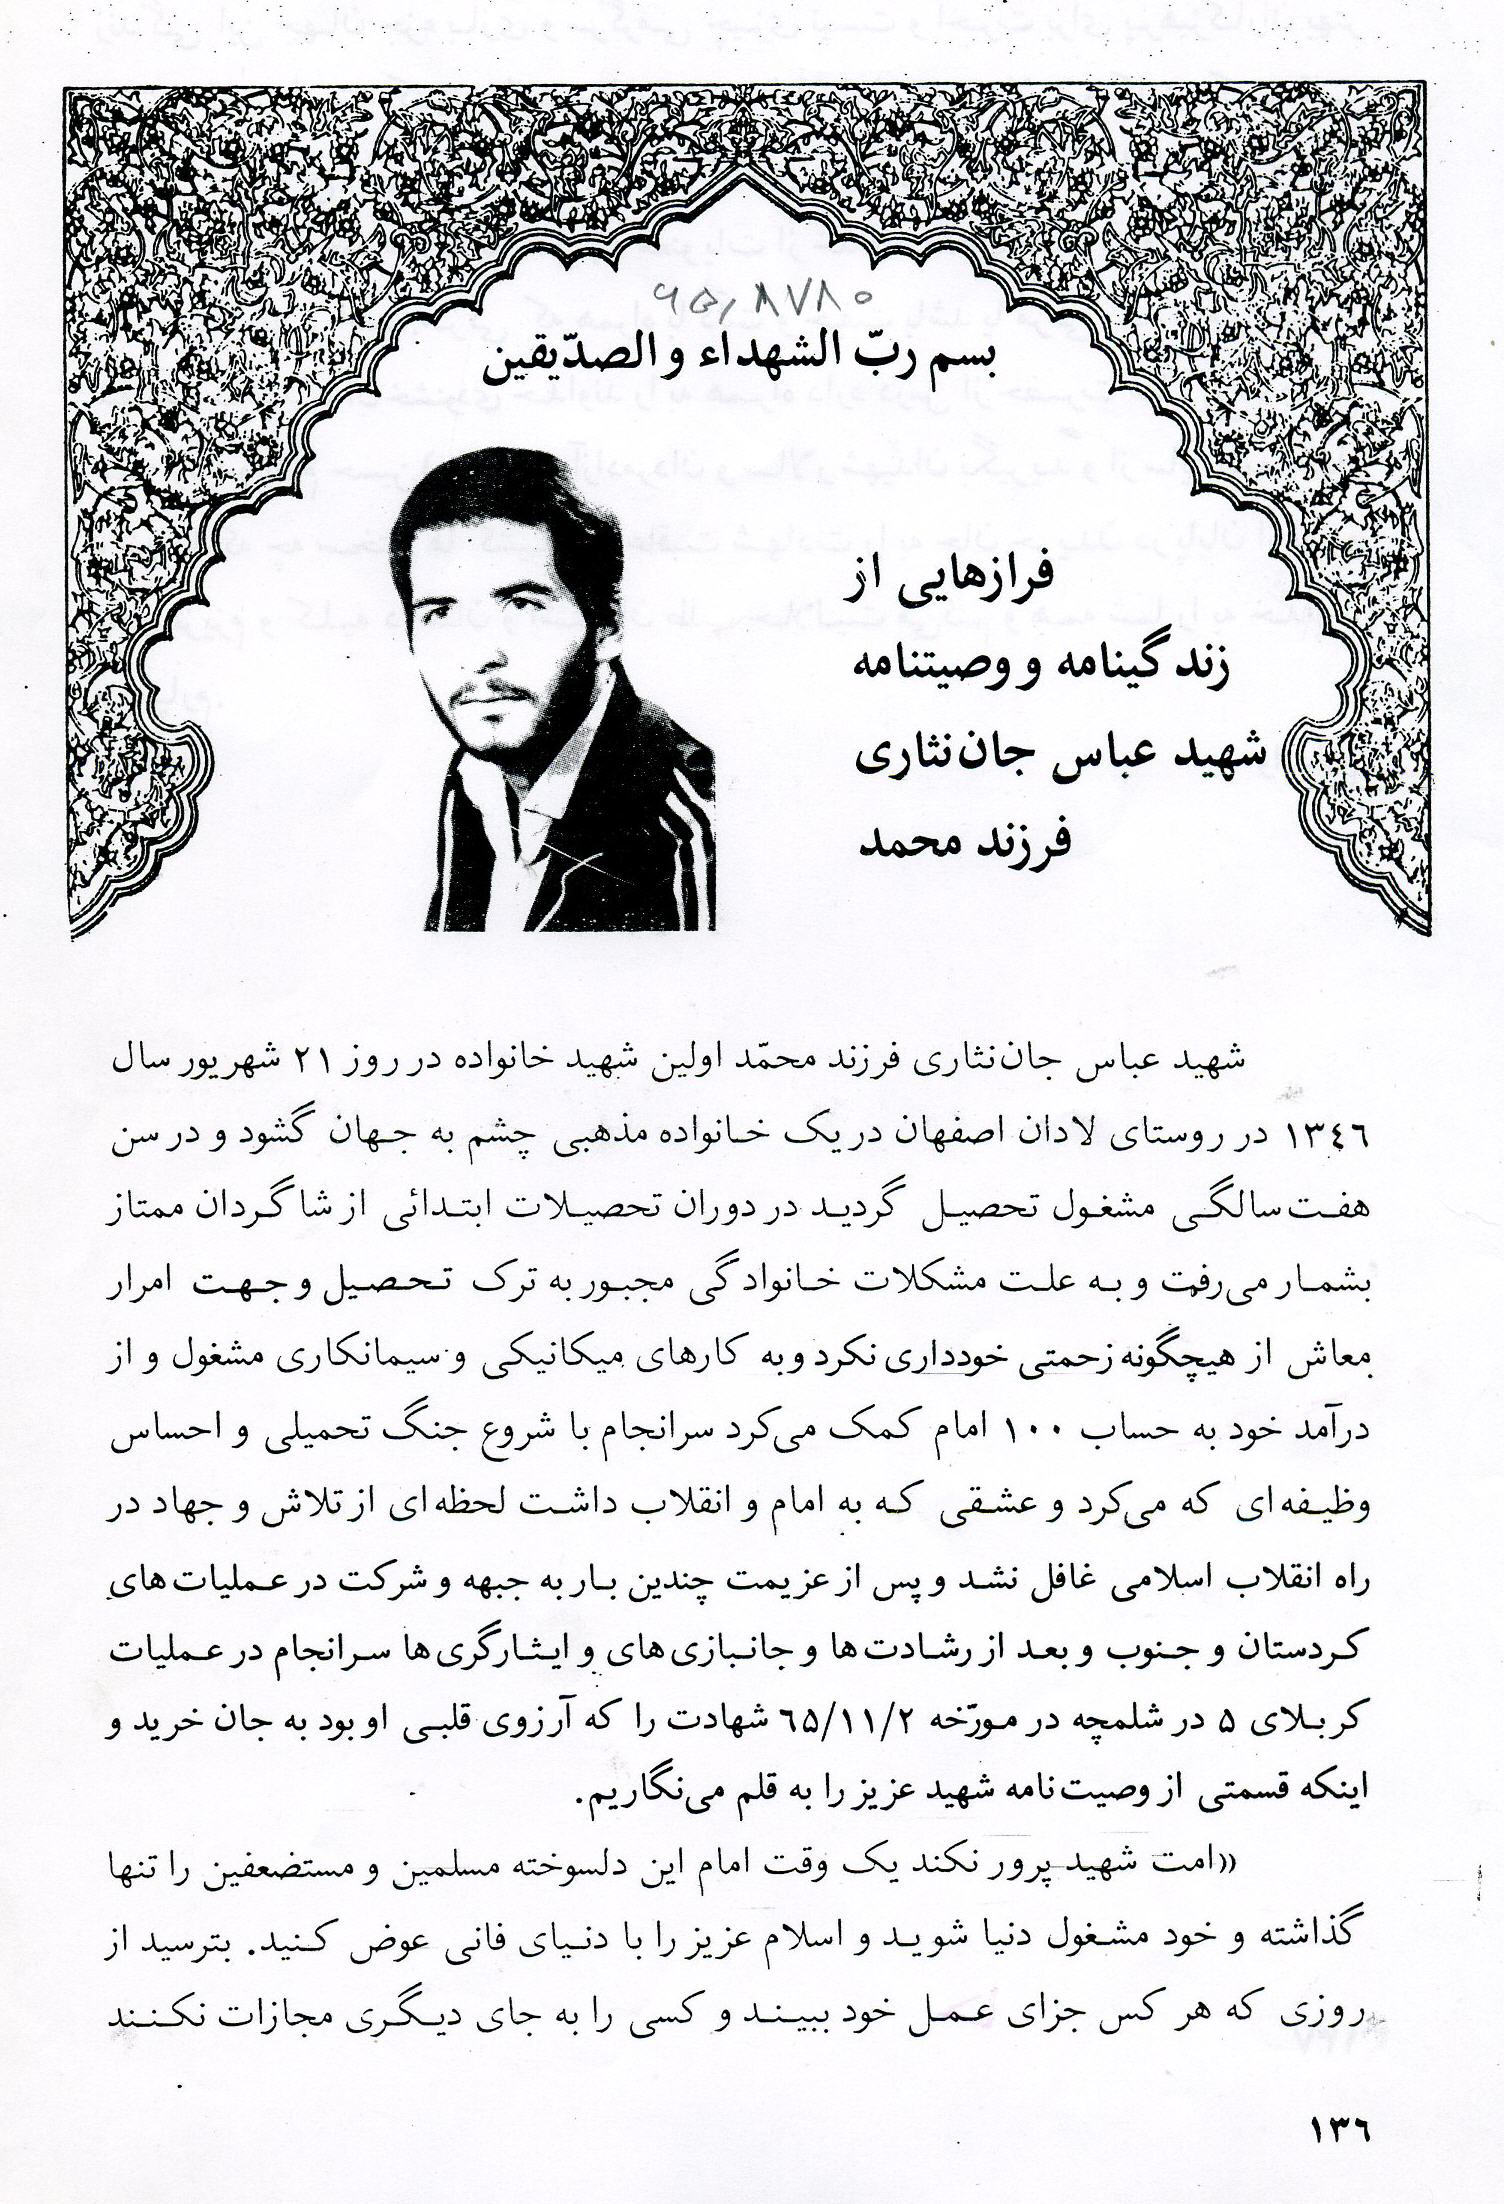 ۶۵۱۸۷۸۰
بسم ربّ الشهداء و الصدّیقین
فرازهایی از
زندگینامه و وصیتنامه
شهید عباس جان‌نثاری
فرزند محمد
شهید عباس جان‌نثاری فرزند محمّد اولین شهید خانواده در روز ۲۱ شهریور سال
۱۳٤٦ در روستای لادان اصفهان در یک خانواده مذهبی چشم به جهان گشود و در سن
هفت سالگی مشغول تحصیل گردید در دوران تحصیلات ابتدائی از شاگردان ممتاز
بشمار می‌رفت و به علت مشکلات خانوادگی مجبور به ترک تحصیل و جهت امرار
معاش از هیچگونه زحمتی خودداری نکرد و به کارهای میکانیکی و سیمانکاری مشغول و از
درآمد خود به حساب ۱۰۰ امام کمک می‌کرد سرانجام با شروع جنگ تحمیلی و احساس
وظیفه‌ای که می‌کرد و عشقی که به امام و انقلاب داشت لحظه‌ای از تلاش و جهاد در
راه انقلاب اسلامی غافل نشد و پس از عزیمت چندین بار به جبهه و شرکت در عملیات‌های
کردستان و جنوب و بعد از رشادت‌ها و جانبازی‌های و ایثارگری‌ها سرانجام در عملیات
کربلای ۵ در شلمچه در مورّخه ٦۵/۱۱/۲ شهادت را که آرزوی قلبی او بود به جان خرید و
اینکه قسمتی از وصیت‌نامه شهید عزیز را به قلم می‌نگاریم.
«امت شهید پرور نکند یک وقت امام این دلسوخته مسلمین و مستضعفین را تنها
گذاشته و خود مشغول دنیا شوید و اسلام عزیز را با دنیای فانی عوض کنید. بترسید از
روزی که هر کس جزای عمل خود ببیند و کسی را به جای دیگری مجازات نکنند
۱۳٦